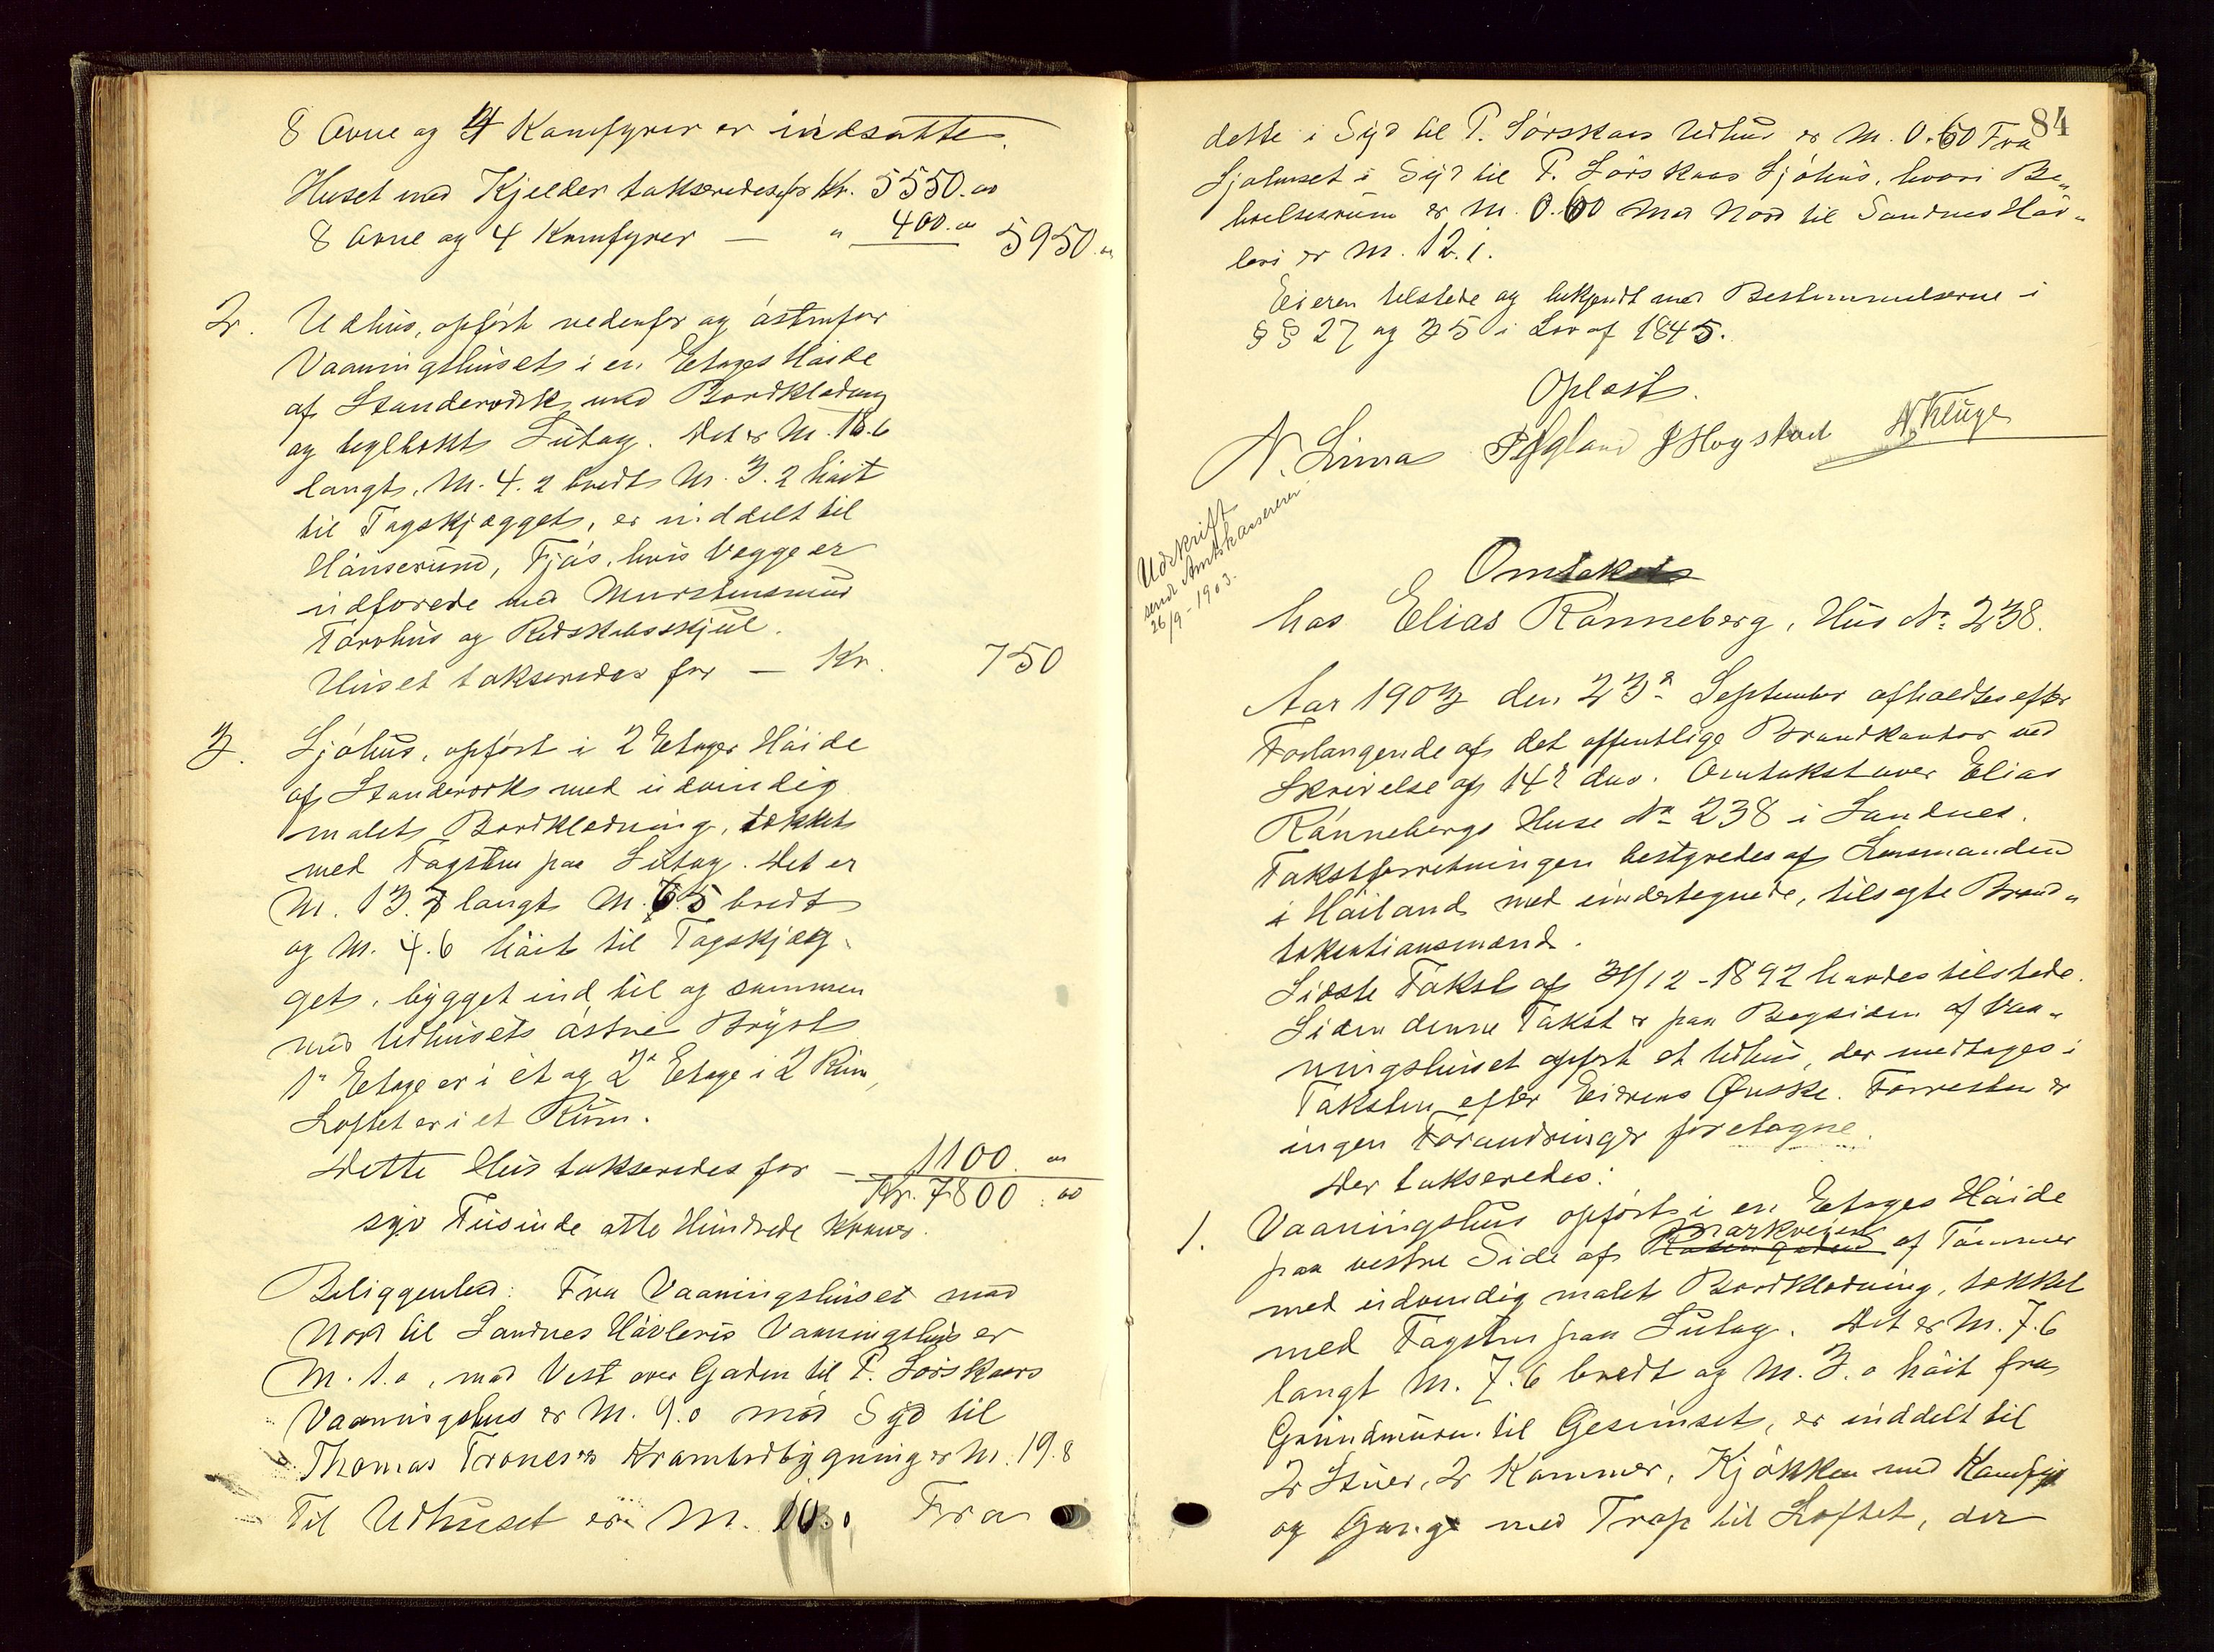 8 Ovne og 4 Komfyrer er indsatte.
Huset med Kjelder takseredes for Kr. 5550.00
8 Ovne og 4 Komfyrer — " 400.00 5950.00
2. Udhus, opført nedenfor og østenfor
Vaaningshuset i en Etages Høide
af Standerværk med Bordklædning
og teglhækt Sutag. Det er M. 18.6
langt, M. 4.2 bredt M. 3.2 høit
til Tagskjægget, er inddelt til
Hønserum, Fjøs, hvis Vægge er
udforede med Murstensmur
Tørvhus og Redskabsskjul.
Huset takseredes for — Kr. 750
3. Sjøhus, opført i 2 Etages Høide
af Standerværk med udvendig
malet Bordklædning, tækket
med Tagsten paa Sutag. Det er
M. 13.7 langt M. 6.5 bredt
og M. 4.6 høit til Tagskjæg-
get, bygget ind til og sammen
med Udhusets østre Bryst
1e Etage er i et og 2e Etage i 2 Rum,
Loftet er i et Rum.
Dette Hus takseredes for — 1100.00
Kr. 7800.00
syv Tusinde otte Hundrede Kroner.
Beliggenhed: Fra Vaaningshuset mod
Nord til Sandnes Høvleris Vaaningshus er
M. 1.0, mod Vest over Gaden til P. Sørskaars
Vaaningshus er M. 9.0 mod Syd til
Thomas Tronesvs Krambodbygning er M. 19.8
Til Udhuset er M. 10.0 Fra
84
dette i Syd til P. Sørskaas Udhus er M. 0.60 Fra
Sjøhuset i Syd til P. Sørskaas Sjøhus, hvori Be-
boelsesrum er M. 0.60 mod Nord til Sandnes Høv-
leri er M. 12.1.
Eieren tilstede og bekjendt med Bestemmelserne i
§§ 27 og 35 i Lov af 1845.
Oplæst.
N. Lima J Hogstad N. Kluge
Udskrift
sendt Amtskasserer
26/9-1903.
Omtakst
hos Elias Rønneberg, Hus No. 238.
Aar 1903 den 23de September afholdtes efter
Forlangende af det offentlige Brandkontor ved
Skrivelse af 14de ds. Omtakst over Elias
Rønnebergs Huse No 238 i Sandnes.
Takstforretningen bestyredes af Lensmanden
i Høiland med undertegnede, tilsagte Brand-
takstationsmænd.
Sidste Takst af 31/12-1892 havdes tilstede.
Siden denne Takst er paa Bagsiden af Vaa-
ningshuset opført et Udhus, der medtages i
Taksten efter Eierens Ønske. Forresten er
ingen Forandringer foretagne.
Der takseredes:
1. Vaaningshus opført i en Etages Høide
paa vestre Side af Markveien af Tømmer
med udvendig malet Bordklædning, tækket
med Tagsten paa Sutag. Det er M. 7.6
langt M. 7.6 bredt og M. 3.0 høit fra
Grundmuren til Gesimset, er inddelt til
2 Stuer, 2 Kammer, Kjøkken med Komfyr
og Gange med Trap til Loftet, der